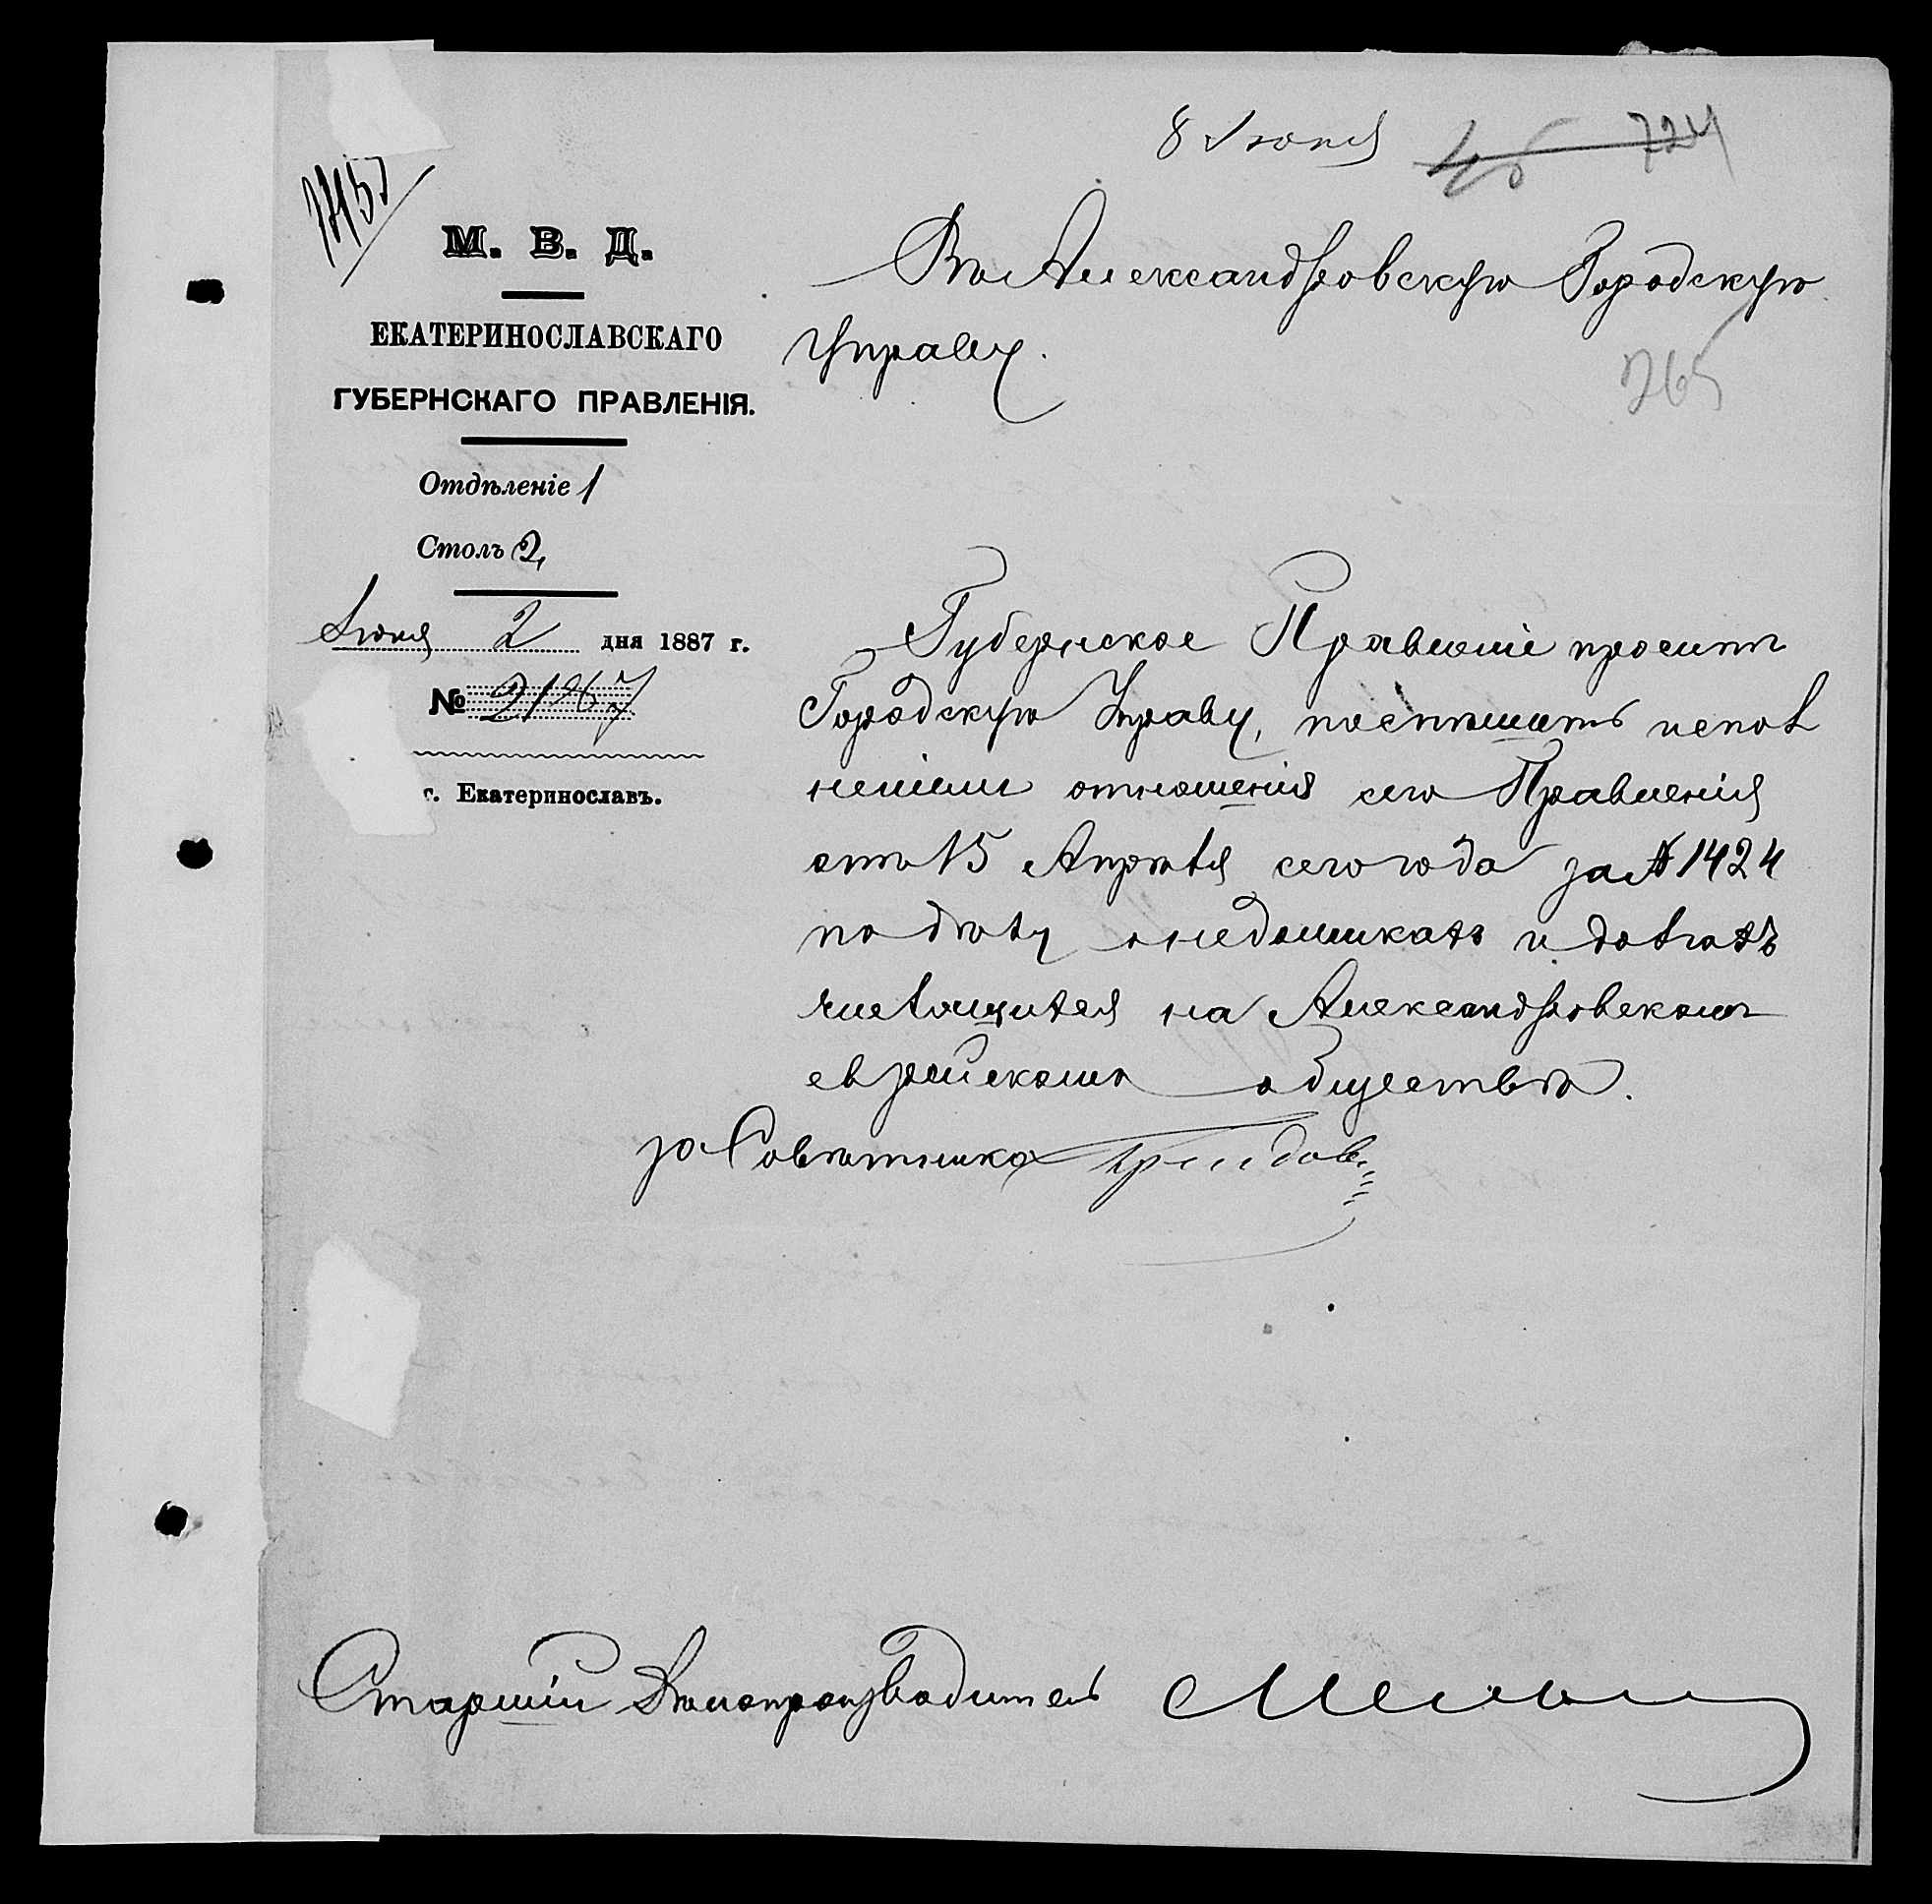 8 Июня 724
265
М. В. Д.
ЕКАТЕРИНОСЛАВСКАГО
ГУБЕРНСКАГО ПРАВЛЕНІЯ.
Отдѣленіе 1
Столъ 2,
Июня 2 дня 1887 г.
№ 2167
г. Екатеринославъ.
Въ Александровскую Городскую
Управу.
Губернское Правленіе просить
Городскую Управу, поспѣшить испол
неніемъ отношенія сего Правленія
отъ 15 Апрѣля сего года за № 1424
по дѣлу о недоимкахъ и долгахъ
числящихся на Александровскомъ
еврейскомъ обществѣ.
за Совѣтника
Старшій Дѣлопроизводитель